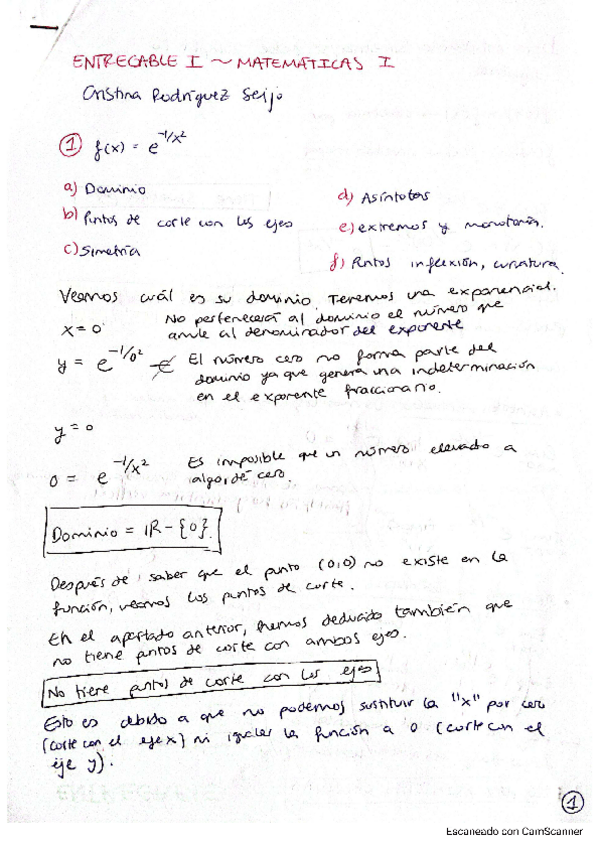 ENTREGABLE I ~ MATEMÁTICAS I
Cristina Rodríguez Seijo
① f(x) = e^-1/x²
a) Dominio
b) Puntos de corte con los ejes
c) Simetría
d) Asíntotas
e) extremos y monotonía.
f) Puntos inflexión, curvatura.
Veamos cuál es su dominio. Tenemos una exponencial.
x = 0
No pertenecerá al dominio el número que
anule al denominador del exponente
y = e^-1/0²
El número cero no forma parte del
dominio ya que genera una indeterminación
en el exponente fraccionario.
y = 0
0 = e^-1/x²
Es imposible que un número elevado a
algo, dé cero
Dominio = ℝ - {0}.
Después de saber que el punto (0,0) no existe en la
función, veamos los puntos de corte.
En el apartado anterior, hemos deducido también que
no tiene puntos de corte con ambos ejes.
No tiene puntos de corte con los ejes
Esto es debido a que no podemos sustituir la "x" por cero
(corte con el eje x) ni igualar la función a 0 (corte con el
eje y).
①
Escaneado con CamScanner